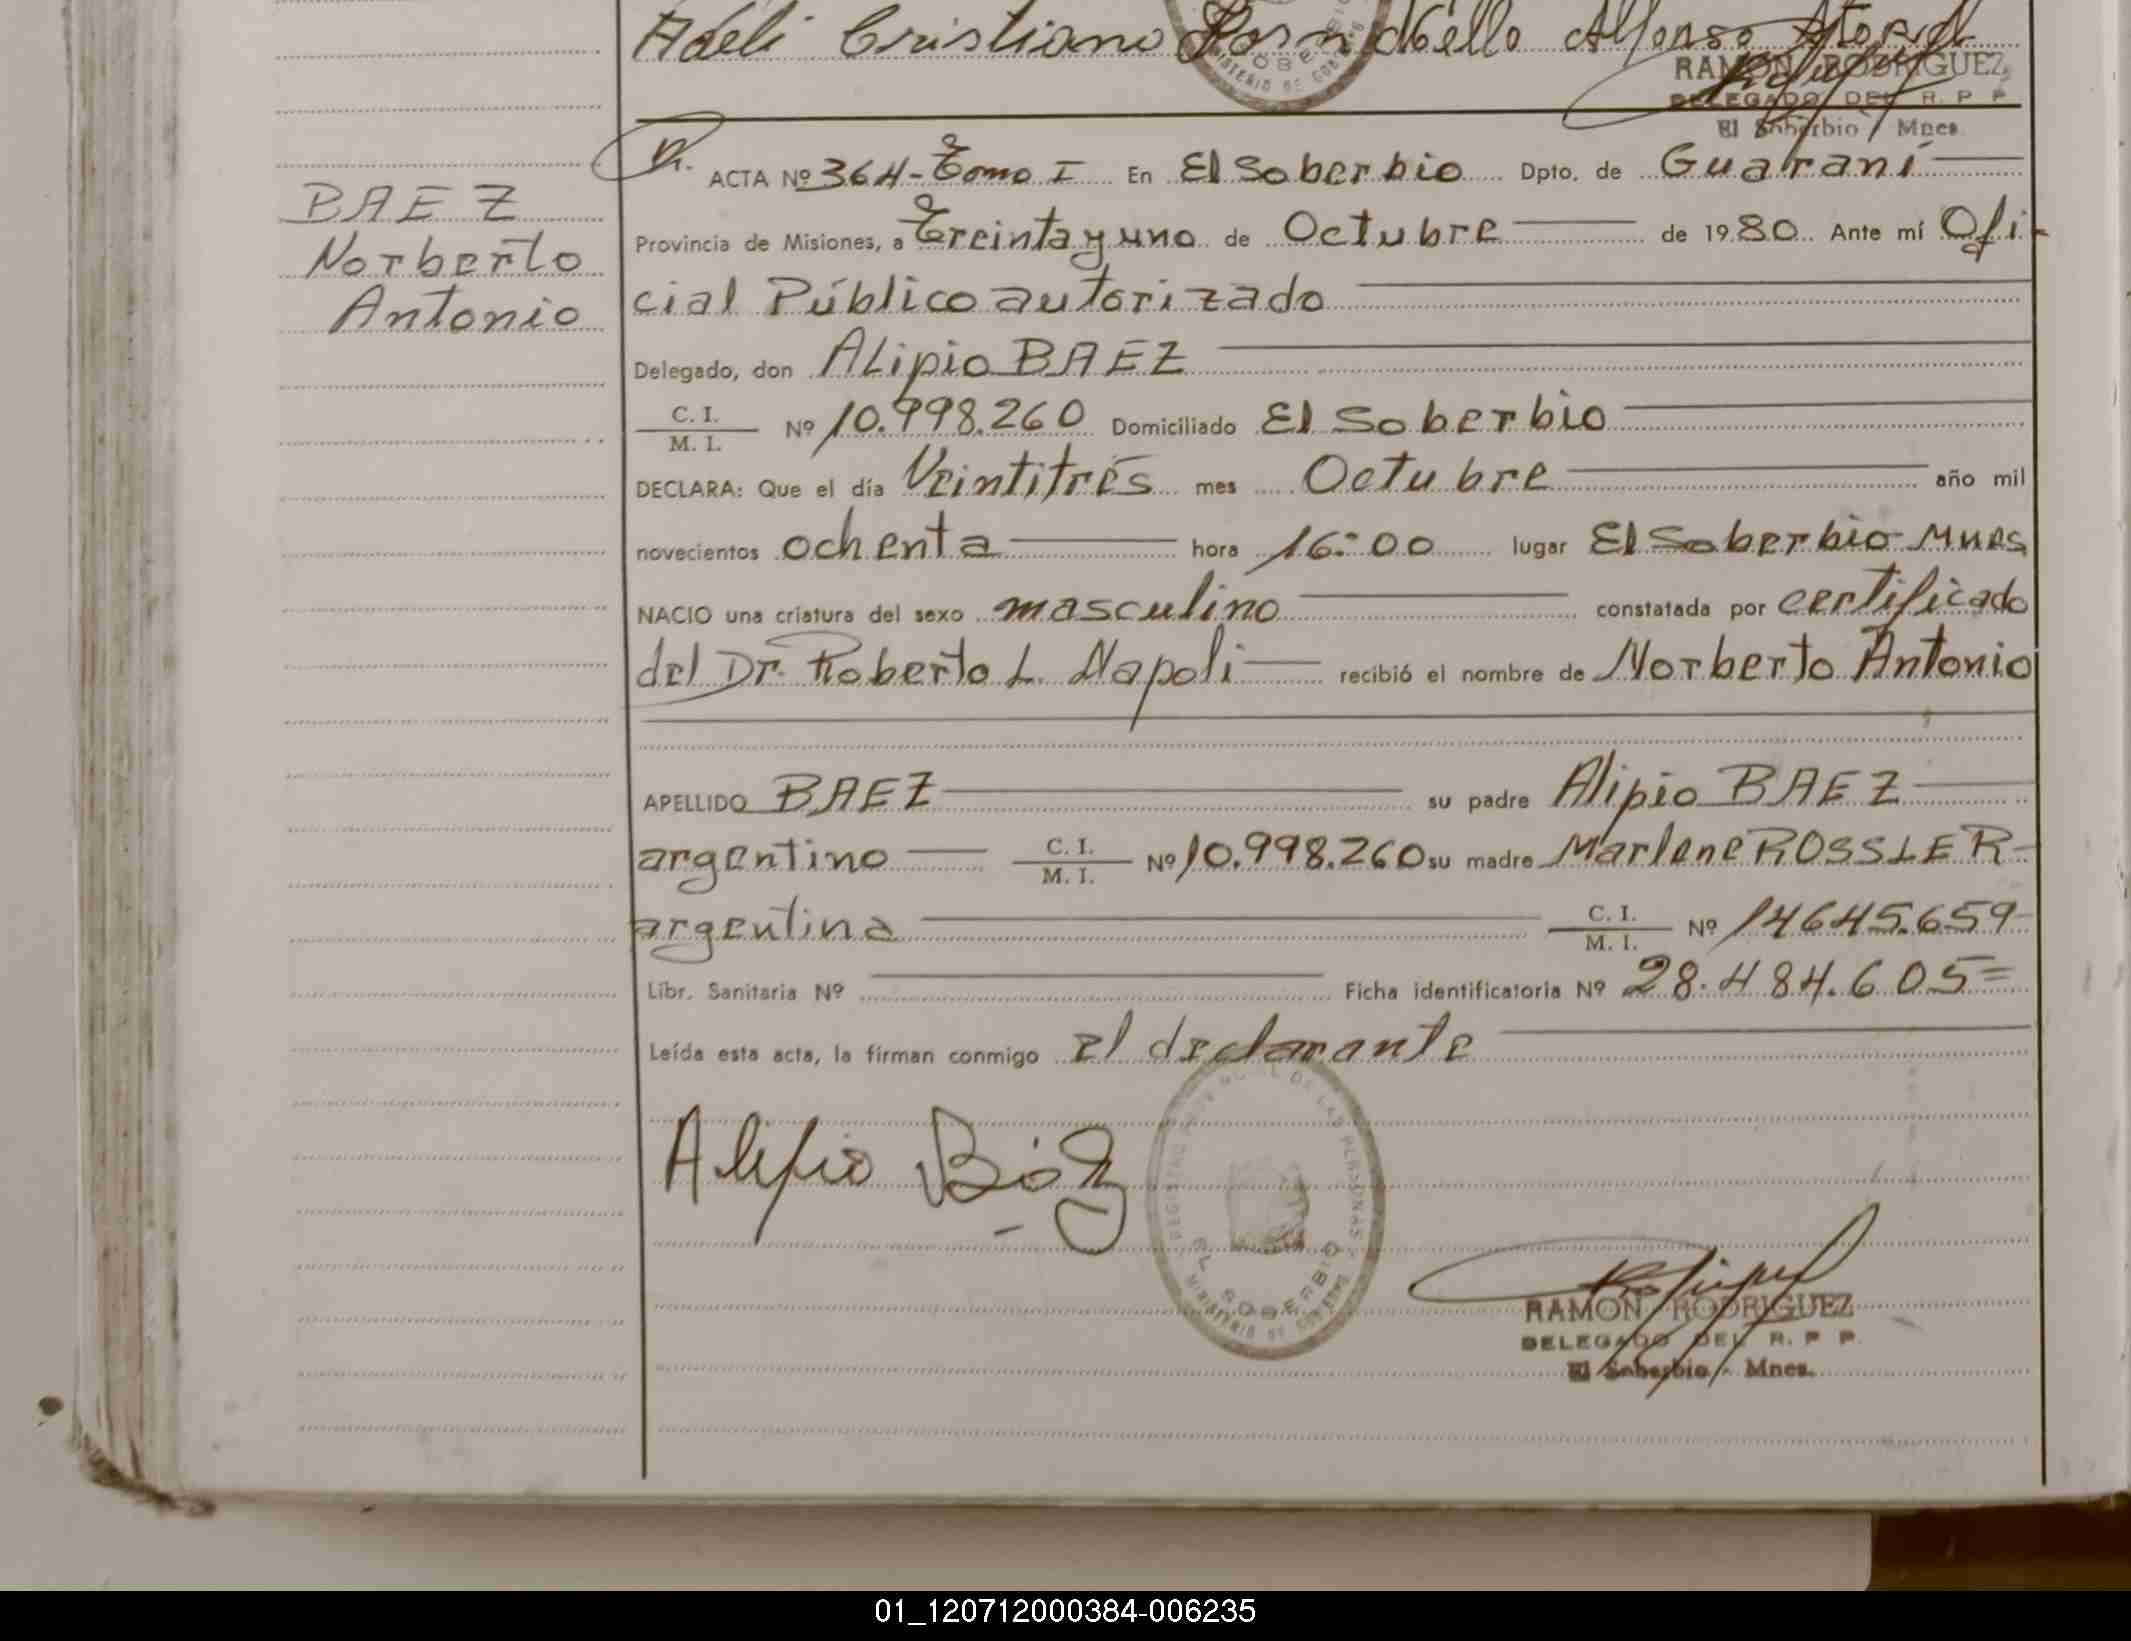 Adeli Cristiano
Alfonso
RAMON RODRIGUEZ
DELEGADO DEL R. P. P.
El Soberbio - Mnes.
BAEZ
Norberto
Antonio
ACTA Nº 364 - Tomo I En El Soberbio Dpto. de Guaraní
Provincia de Misiones, a Treinta y uno de Octubre de 1980. Ante mí Ofi-
cial Público autorizado
Delegado, don Alipio BAEZ
C. I.
M. I.
Nº 10.998.260 Domiciliado El Soberbio
DECLARA: Que el día Veintitrés mes Octubre año mil
novecientos ochenta hora 16:00 lugar El Soberbio Mnes
NACIO una criatura del sexo masculino constatada por certificado
del Dr. Roberto L. Napoli recibió el nombre de Norberto Antonio
APELLIDO BAEZ su padre Alipio BAEZ
argentino C. I. M. I. Nº 10.998.260 su madre Marlene ROSSLER-
argentina C. I. M. I. Nº 14645.659-
Libr. Sanitaria Nº Ficha identificatoria Nº 28.484.605=
Leída esta acta, la firman conmigo el declarante
Alipio Báez
REGISTRO PROVINCIAL DE LAS PERSONAS
EL SOBERBIO
MINISTERIO DE GOBIERNO
RAMON RODRIGUEZ
DELEGADO DEL R. P. P.
El Soberbio - Mnes.
01_120712000384-006235